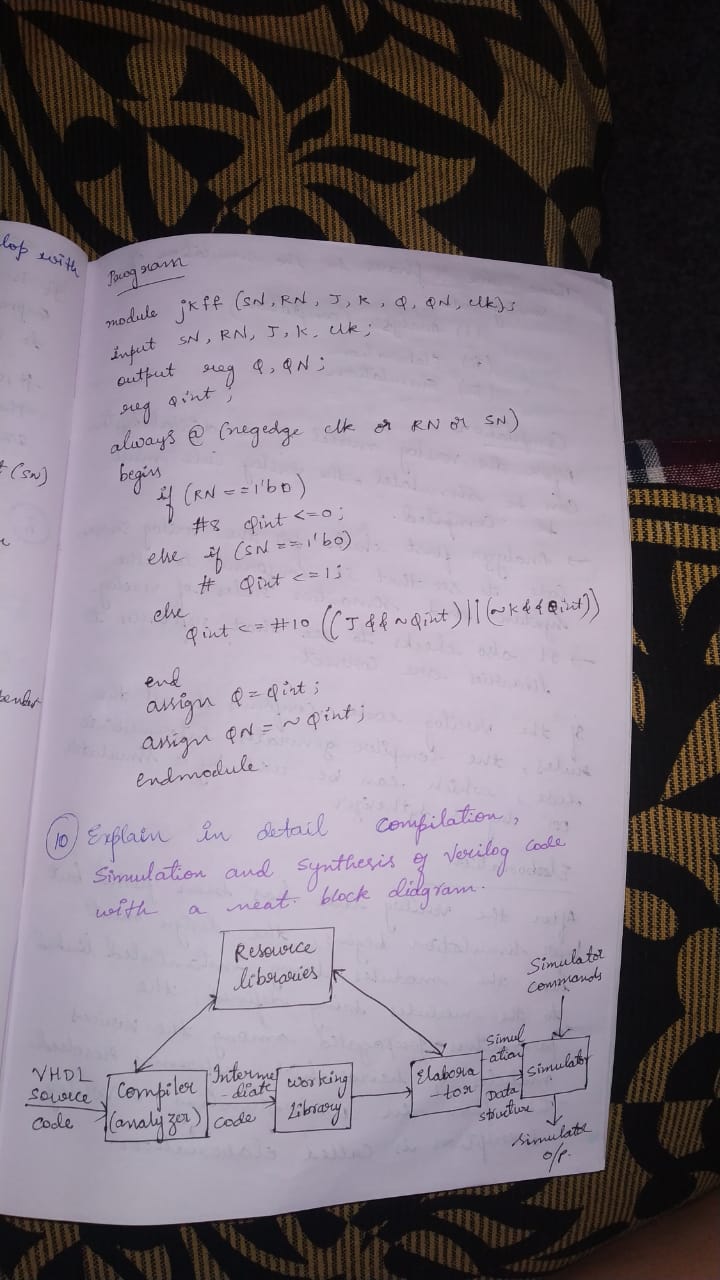 lop with
t (SN)
Program
module jkff (SN, RN, J, K, Q, QN, clk);
input SN, RN, J, K, clk;
output reg Q, QN;
reg Qint;
always @ (negedge clk or RN or SN)
begin
if (RN == 1'b0)
#8 Qint <= 0;
else if (SN == 1'b0)
# Qint <= 1;
else
Qint <= #10 ((J && ~Qint) || (~K && Qint))
end
assign Q = Qint;
assign QN = ~Qint;
endmodule
10 Explain in detail compilation,
Simulation and Synthesis of Verilog code
with a neat block diagram.
Resource
libraries
Simulator
commands
VHDL
source
code
Compiler
(analyzer)
Interme
-diate
code
Working
Library
Elabora
-tor
Simul
ation
Data
structure
Simulator
Simulator
o/p.